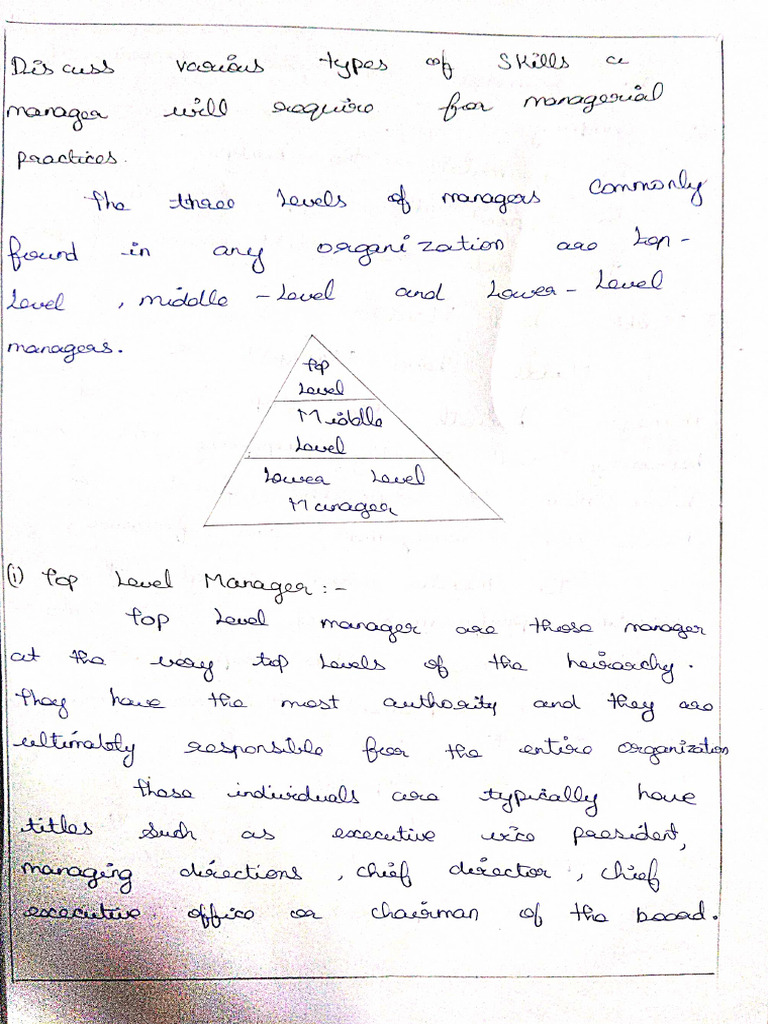 Discuss various types of skills a
manager will require for managerial
practices.
The three Levels of managers commonly
found in any organization are top-
Level , middle - Level and Lower - Level
managers.
Top
Level
Middle
Level
Lower Level
Manager
(i) Top Level Manager :-
Top Level manager are those manager
at the very top Levels of the heirarchy.
They have the most authority and they are
ultimably responsible for the entire organization
These individuals are typically have
titles such as executive vice president,
managing directions , chief director , chief
executive office or chairman of the board.